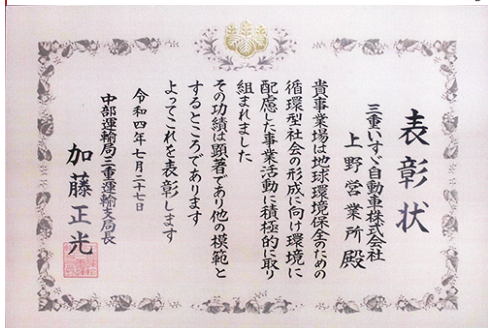 表彰状
三重いすゞ自動車株式会社
上野営業所殿
貴事業場は地球環境保全のための
循環型社会の形成に向け環境に
配慮した事業活動に積極的に取り
組まれました
その功績は顕著であり他の模範と
するところであります
よってこれを表彰します
令和四年七月二十七日
中部運輸局三重運輸支局長
加藤正光